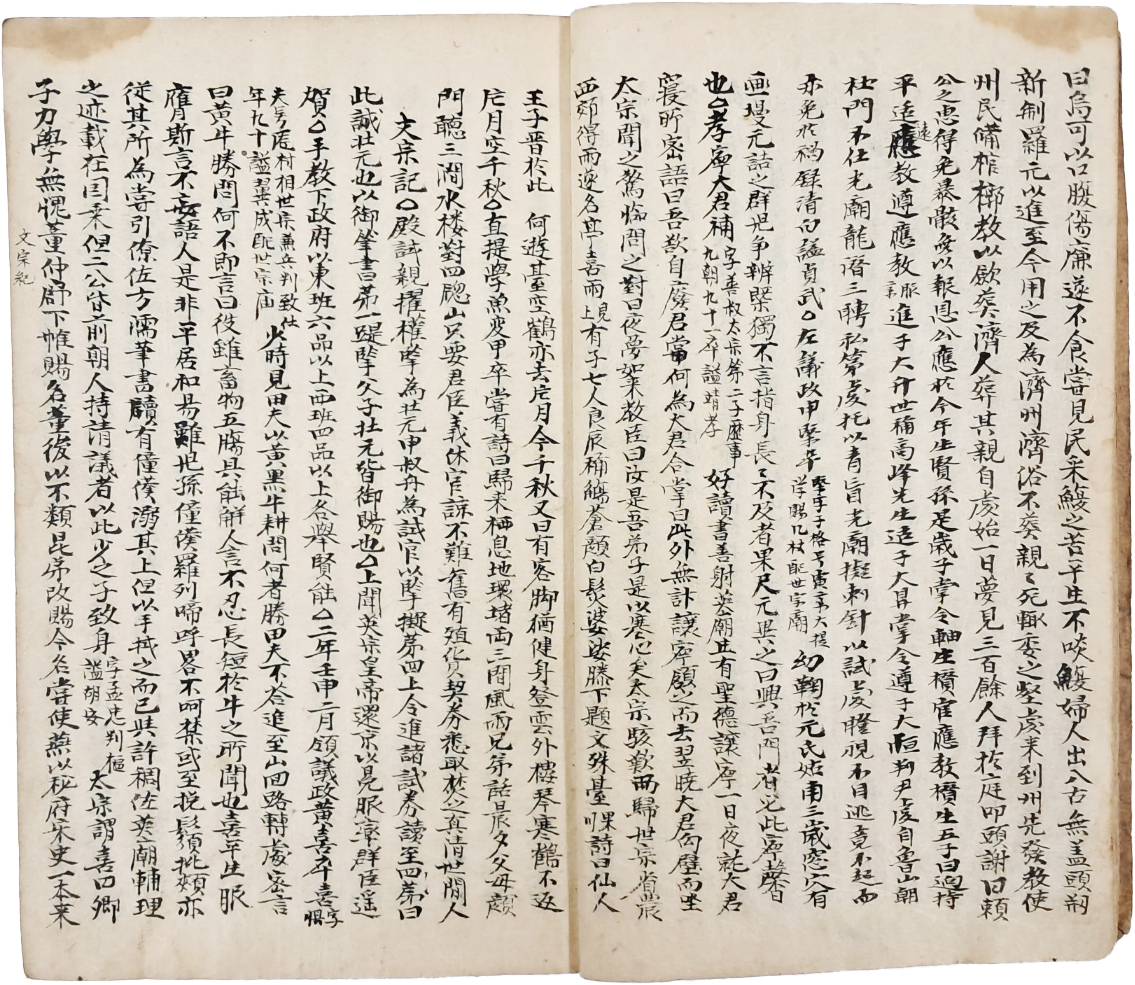 曰烏可以口腹傷廉遂不食嘗見民采鰒之苦平生不啖鰒婦人出入古無盖頭剏
新制羅元以進至今用之及為濟州濟俗不葬親々死輒委之壑虔未到州先發教使
州民備棺槨教以斂葬濟人葬其親自虔始一日夢見三百餘人拜於庭叩頭謝曰賴
公之恩得免暴骸無以報恩公應於今年生賢孫是歲子掌令軸生橫官應教橫生五子曰迥持
平适遠應教遵應教邃進子大升世稱高峰先生遠子大鼎掌令遵子大恒判尹虔自魯山朝
杜門不仕光廟龍潛三聘私第虔托以青盲光廟擬刺針以試虔瞪視不目逃竟不起而
亦免於禍錄清白謚貞武○左議政申槩卒
槩字子格号寅齋大提
学賜几杖配世宗廟
幼鞠於元氏姑甫三歲窓穴有
画墁元詰之群児爭辨槩獨不言指身長々不及者果尺元異之曰興吾門者必此兒
也○孝寧大君補
字善叔太宗第二子歷事
九朝九十一卒謚靖孝
好讀書善射英廟生有聖德讓寧一日夜就大君
寢所密語曰吾欲自廢君當何為大君合掌曰此外無計讓寧頷之而去翌曉大君向壁而坐
太宗聞之驚臨問之對曰夜夢如来教臣曰汝是吾弟子是以塞心矣太宗駭歎而歸世宗省農
西郊得雨遂名亭喜雨
見
上
有子七人良辰稱觴蒼顔白髮婆娑膝下題文殊臺
果
川
詩曰仙人
王子晋於此　何遊臺空鶴亦去片月今千秋又曰有客脚猶健身登雲外樓琴寒鶴不返
片月空千秋○直提學魚变甲卒嘗有詩曰歸来栖息地環堵両三間風雨兄弟話晨夕父母顔
門聽三澗水楼對四陲山只要君臣義休官諒不難舊有殖貨契券悉取焚之真清世間人
文宗記○殿試親擢權擥為壮元申叔舟為試官以擥擬第四上令進諸試券讀至四第曰
此誠壮元也以御筆書第一踶擥父子壮元皆御賜也○上聞英宗皇帝還京以冕服率群臣遥
賀○手教下政府以東班六品以上西班四品以上各舉賢能○二年壬申二月領議政黄喜卒喜
字
惧
夫号厖村相世宗兼立判致仕
年九十謚翼成配世宗庙
少時見田夫以黄黒牛耕問何者勝田夫不答追至山回路轉處密言
曰黄牛勝問何不即言曰役雖畜物五臟具能解人言不忍長短於牛之所聞也喜平生服
膺斯言不妄語人是非平居和易雖児孫僮僕羅列啼呼畧不呵禁或至挽鬚批頰亦
從其所為嘗引僚佐方濡筆書牘有僮僕溺其上但以手拭之而已共許稠佐英廟輔理
之迹載在国乗但二公皆前朝人持請議者以此少之子致身
字孟忠判樞
謚胡安
太宗謂喜曰卿
子力學無愧董仲舒下帷賜名董後以不類昆弟改賜今名嘗使燕以秘府宋史一本来
文宗紀